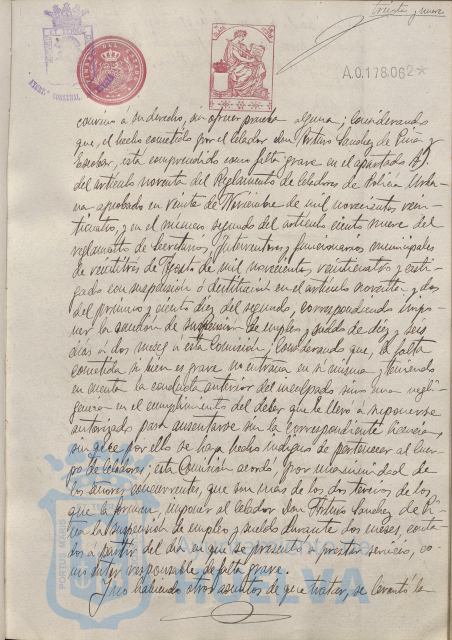 treinta y nueve
A.0.178.062*
convino á su derecho, sin ofrecer prueba alguna; Considerando
que, el hecho cometido por el Celador don Arturo Sanchez de Piva y
Escobar, está comprendido como falta grave en el apartado
del artículo noventa del Reglamento de Celadores de Policía Urba-
na aprobado en veinte de Noviembre de mil novecientos vein-
ticuatro, y en el número segundo del artículo ciento nueve del
reglamento de Secretarios, Interventores y funcionarios municipales
de veintitres de Agosto de mil novecientos veinticuatro y casti-
gado con suspensión ó destitucion en el artículo noventa y dos
del primero y ciento diez del segundo, correspondiendo impo-
ner la sanción de suspensión de empleo y sueldo de diez y seis
dias á dos meses á esta Comisión; Considerando que, la falta
cometida si bien es grave no entraña en sí misma y teniendo
en cuenta la conducta anterior del inculpado sino una negli-
gencia en el cumplimiento del deber que le llevó á suponerse
autorizado para ausentarse sin la correspondiente licencia,
sin que por ello se haya hecho indigno de pertenecer al Cuer-
po de Celadores; esta Comisión acordó, por unanimidad de
los señores concurrentes, que son mas de los dos tercios de los
que la forman, imponer al Celador Don Arturo Sanchez de Pi-
va la suspensión de empleo y sueldo durante dos meses, conta-
dos á partir del dia en que se presentó a prestar servicio, co-
mo autor responsable de falta grave.
Y no habiendo otros asuntos de que tratar, se levantó la
PORTUS MARIS
Ayuntamiento de
HUELVA